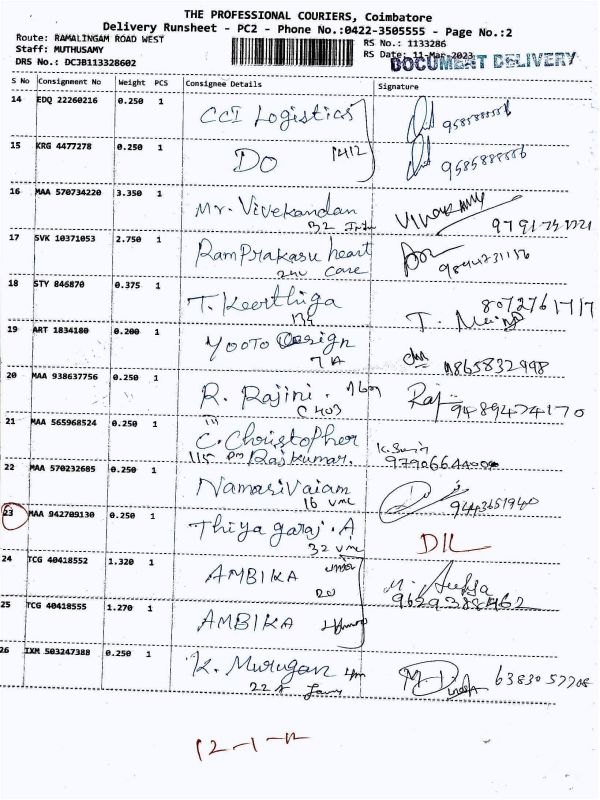 THE PROFESSIONAL COURIERS, Coimbatore
Delivery Runsheet - PC2 - Phone No.:0422-3505555 - Page No.:2
Route: RAMALINGAM ROAD WEST
RS No.: 1133286
Staff: MUTHUSAMY
RS Date: 11-Mar-2023
DRS No.: DCJB113328602
DOCUMENT DELIVERY
S No Consignment No Weight PCS Consignee Details Signature
14 EDQ 22260216 0.250 1 CCI Logistics
15 KRG 4477278 0.250 1 DO 1412 9585888556
16 MAA 570734220 3.350 1 Mr. Vivekandan
32
17 SVK 10371053 2.750 1 Ramprakasu heart
care 9844231116
18 STY 846870 0.375 1 T. Keerthiga 8072761717
19 ART 1834180 0.200 1 YOOTO Design
7 A 9865832998
20 MAA 938637756 0.250 1 R. Rajini. Raj 9489474170
C 403
21 MAA 565968524 0.250 1 C. Christopher
115 Rajkumar.
22 MAA 570232685 0.250 1 Namasivaiam
16 9443651940
23 MAA 942709130 0.250 1 Thiyagaraj. A DIL
32
24 TCG 40418552 1.320 1 AMBIKA
9629388462
25 TCG 40418555 1.270 1 AMBIKA
26 IXM 503247388 0.250 1 K. Murugan 6383057708
22
12-1-11